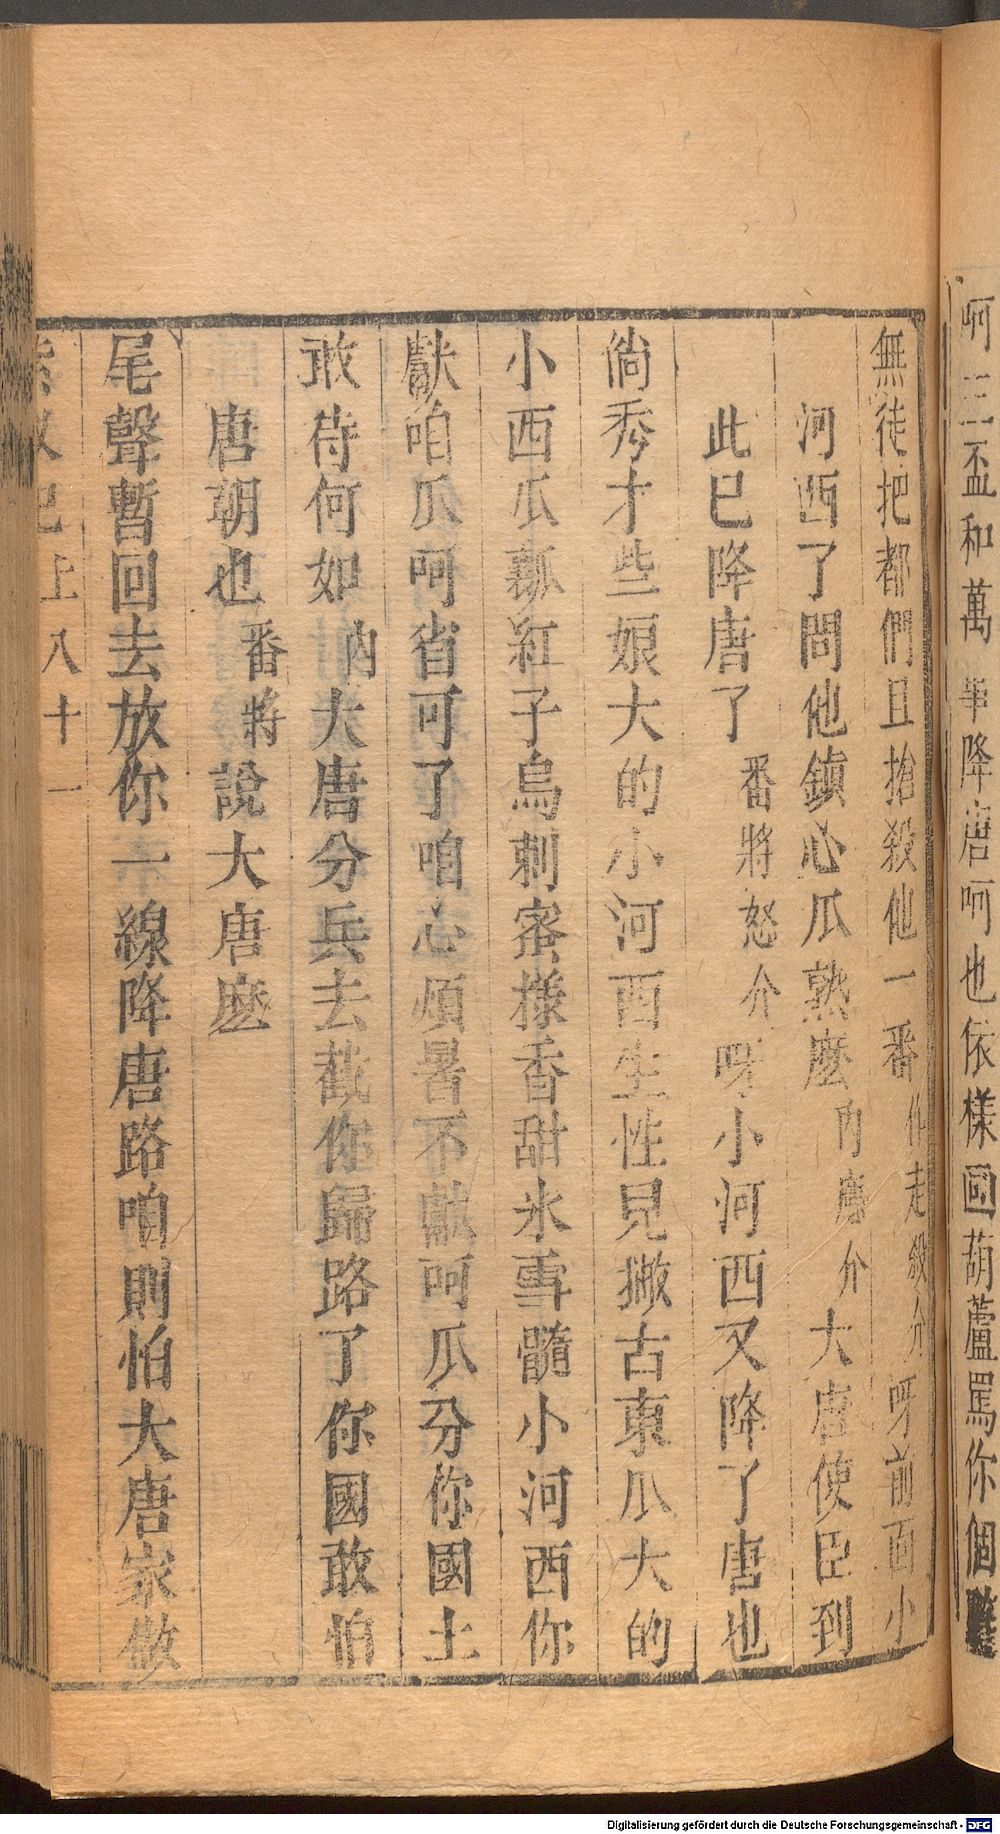 呵三盃和萬事降唐呵也依樣國葫蘆罵你個
無徒把都們且搶殺他一番作走殺介呀前面小
河西了問他鎮心瓜熟麽内應介大唐使臣到
此已降唐了番將怒介呀小河西又降了唐也
倘秀才些娘大的小河西生性見撇古東瓜大的
小西瓜瓤紅子烏刺蜜樣香甜氷雪髓小河西你
獻咱瓜呵省可了咱心煩暑不獻呵瓜分你國土
敢待何如内大唐分兵去截你歸路了你國敢怕
唐朝也番將說大唐麽
尾聲暫回去放你一線降唐路咱則怕大唐家做
上八十一
Digitalisierung gefördert durch die Deutsche Forschungsgemeinschaft - DFG